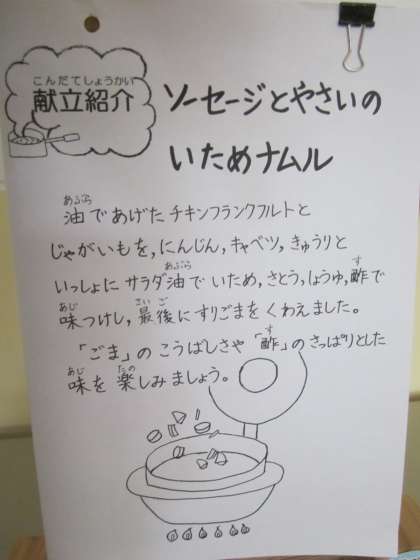 こんだてしょうかい
献立紹介
ソーセージとやさいの
いためナムル
あぶら
油であげたチキンフランクフルトと
じゃがいもを,にんじん,キャベツ,きゅうりと
あぶら す
いっしょにサラダ油でいため,さとう,しょうゆ,酢で
あじ さいご
味つけし,最後にすりごまをくわえました。
す
「ごま」のこうばしさや「酢」のさっぱりとした
あじ たの
味を楽しみましょう。